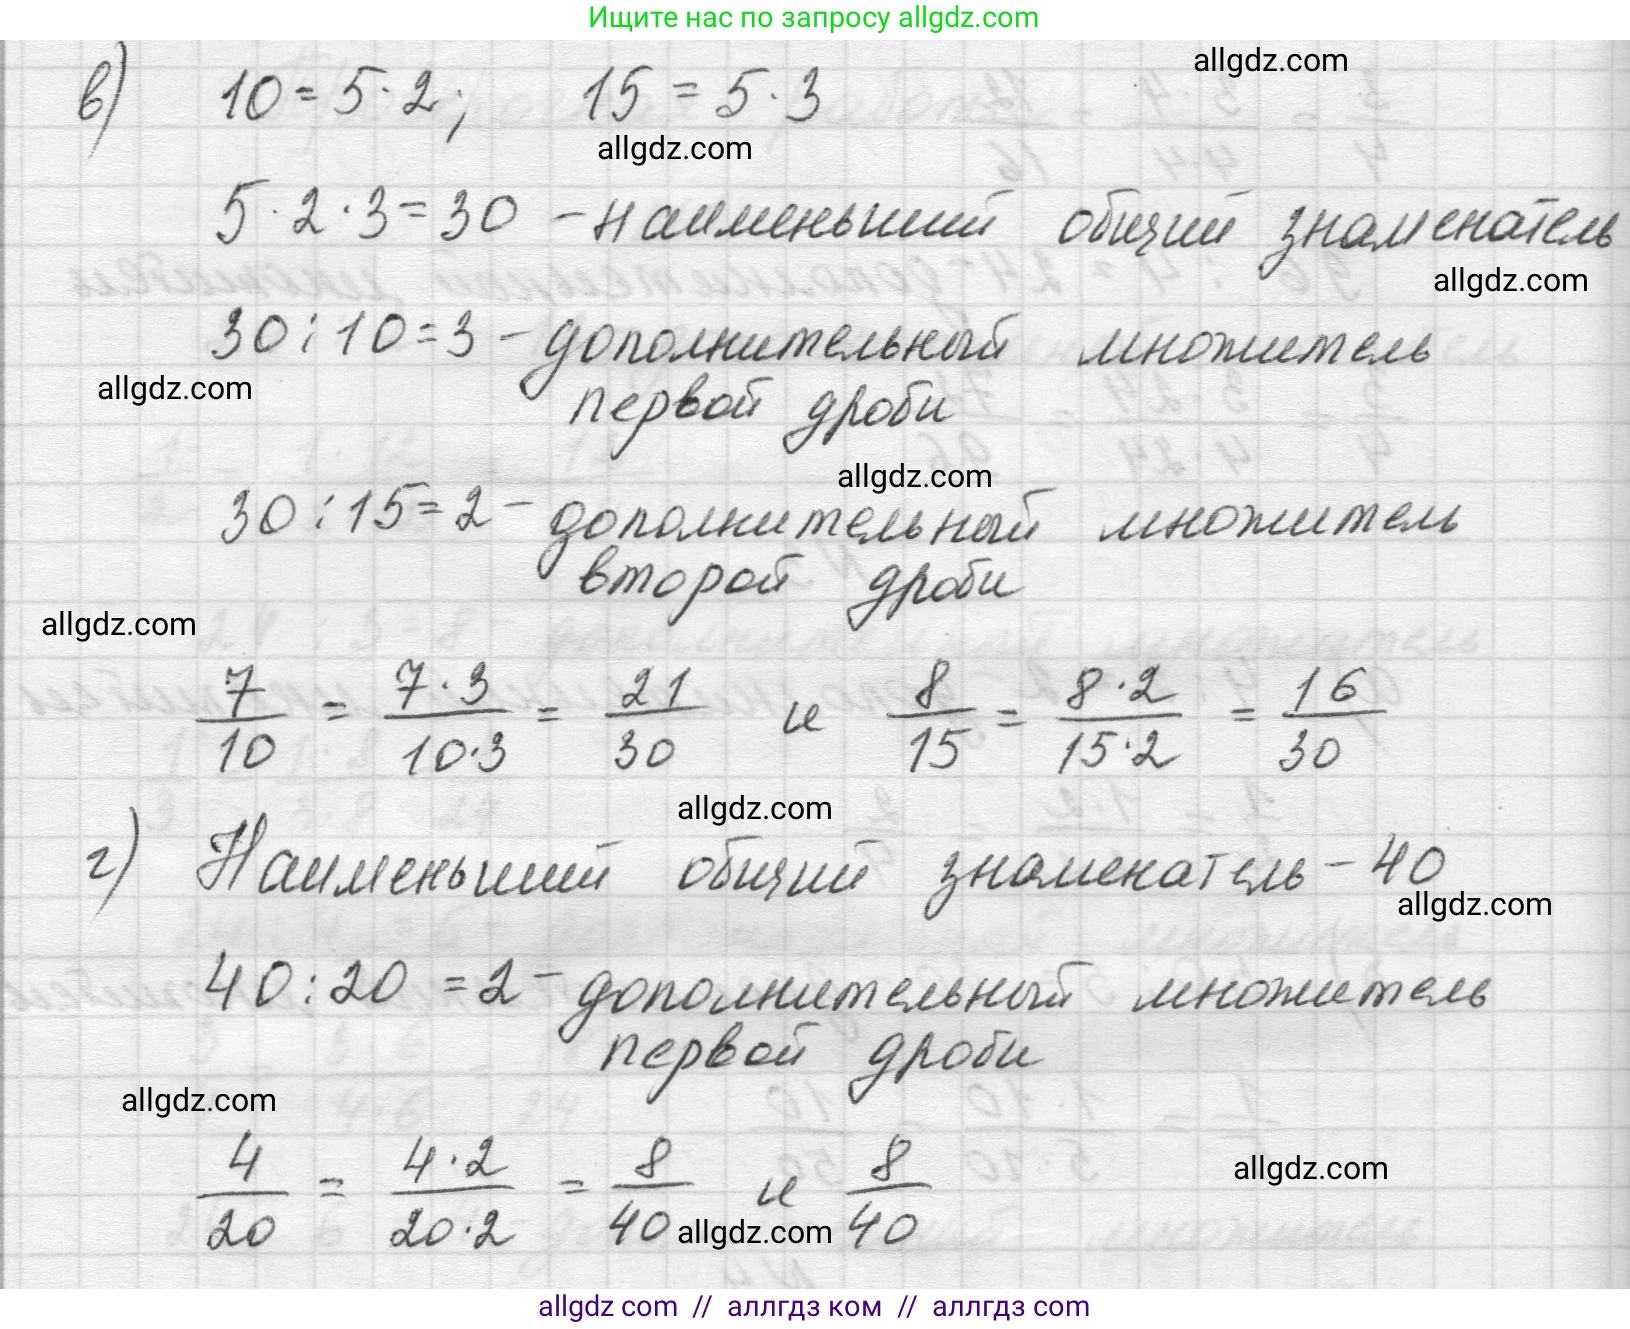 Ищите нас по запросу allgdz.com
allgdz.com
в) 10 = 5 · 2; 15 = 5 · 3
allgdz.com
5 · 2 · 3 = 30 – наименьший общий знаменатель
allgdz.com
30 : 10 = 3 – дополнительный множитель
allgdz.com
первой дроби
allgdz.com
30 : 15 = 2 – дополнительный множитель
второй дроби
allgdz.com
7/10 = 7·3/10·3 = 21/30 и 8/15 = 8·2/15·2 = 16/30
allgdz.com
г) Наименьший общий знаменатель – 40
allgdz.com
40 : 20 = 2 – дополнительный множитель
первой дроби
allgdz.com
4/20 = 4·2/20·2 = 8/40 и 8/40
allgdz.com
allgdz.com
allgdz com // аллгдз ком // аллгдз com